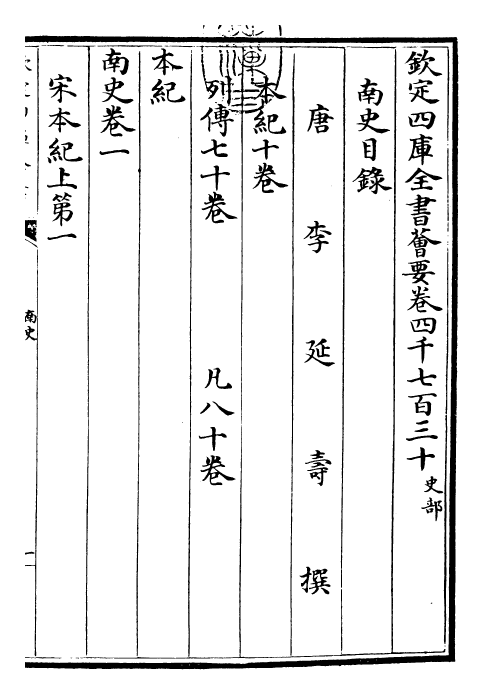 欽定四庫全書薈要卷四千七百三十 史部
南史目錄
唐 李 延 壽 撰
本紀十卷
列傳七十卷 凡八十卷
本紀
南史卷一
宋本紀上第一
南史
一